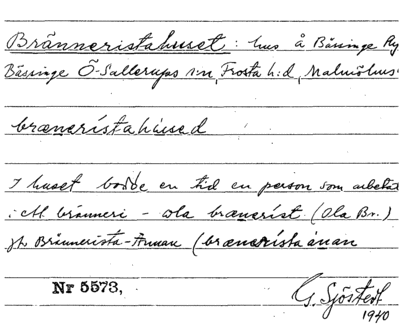 Bränneristahuset: hus å Bässinge By
Bässinge Ö-Sallerups s:n, Frosta h:d, Malmöhus
brænerístahùsed
I huset bodde en tid en person som arbeta
i ett bränneri - ola bræneríst (Ola Br.)
jfr Brännerista-Annan (brænerísta ánan
Nr 5573,
G. Sjöstedt
1940